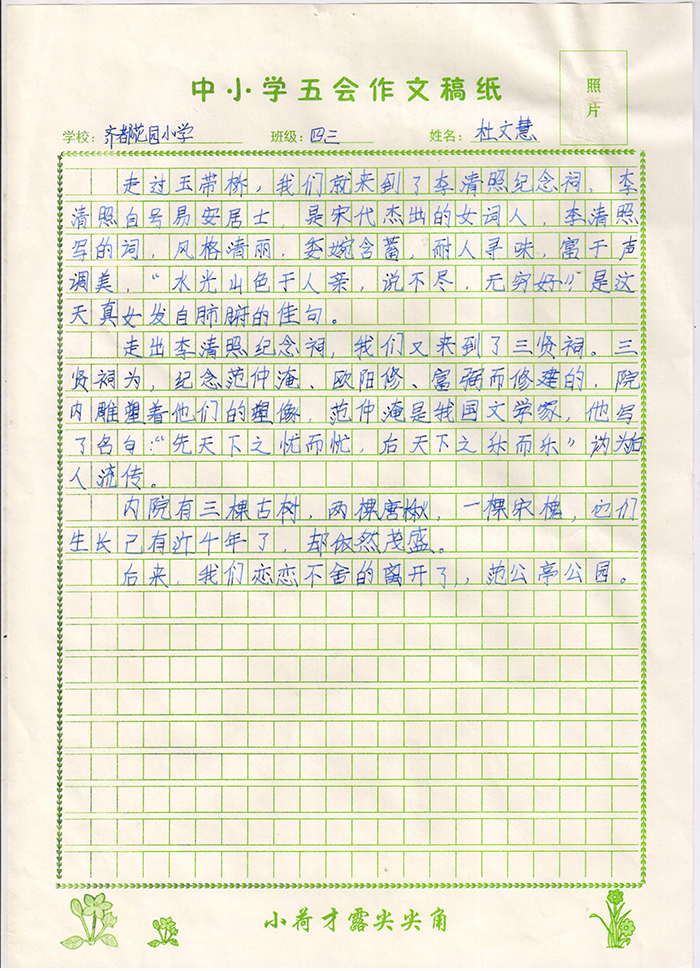 中小学五会作文稿纸
照
片
学校: 齐都花园小学 班级: 四三 姓名: 杜文慧
走过玉带桥，我们就来到了李清照纪念祠，李
清照自号易安居士，是宋代杰出的女词人，李清照
写的词，风格清丽，委婉含蓄，耐人寻味，富于声
调美，“水光山色于人亲，说不尽，无穷好”是这
天真女发自肺腑的佳句。
走出李清照纪念祠，我们又来到了三贤祠。三
贤祠为，纪念范仲淹、欧阳修、富强而修建的，院
内雕塑着他们的塑像，范仲淹是我国文学家，他写
了名句：“先天下之忧而忧，后天下之乐而乐”为后
人流传。
内院有三棵古树，两棵唐楸，一棵宋槐，它们
生长已有近千年了，却依然茂盛。
后来，我们恋恋不舍的离开了，范公亭公园。
小荷才露尖尖角